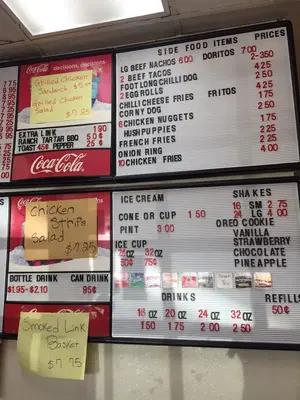 Grilled Chicken
Sandwich $5.75
Grilled Chicken
Salad $7.75
Coca-Cola decisions, decisions
EXTRA LINK 190
RANCH TARTAR BBQ 50¢
TOAST 45¢ PEPPER 25¢
Coca-Cola
SIDE FOOD ITEMS PRICES
LG BEEF NACHOS 600 DORITOS 700
2 BEEF TACOS 2-350
FOOTLONG CHILLI DOG 425
2 EGG ROLLS 425
CHILLI CHEESE FRIES FRITOS 250
CORNY DOG 250
6 CHICKEN NUGGETS 175
HUSHPUPPIES 225
FRENCH FRIES 275
ONION RING 400
10 CHICKEN FRIES
Chicken
Strips
Salad
$7.95
BOTTLE DRINK CAN DRINK
$1.95-$2.10 95¢
Smoked Link
Basket
$7.75
ICE CREAM
CONE OR CUP 150
PINT 300
ICE CUP
25oz 32oz
50¢ 75¢
SHAKES
16 SM 275
24 LG 400
OREO COOKIE
VANILLA
STRAWBERRY
CHOCOLATE
PINEAPPLE
DRINKS REFILL
16 oz 20 oz 24 oz 32 oz 50¢
150 175 200 250